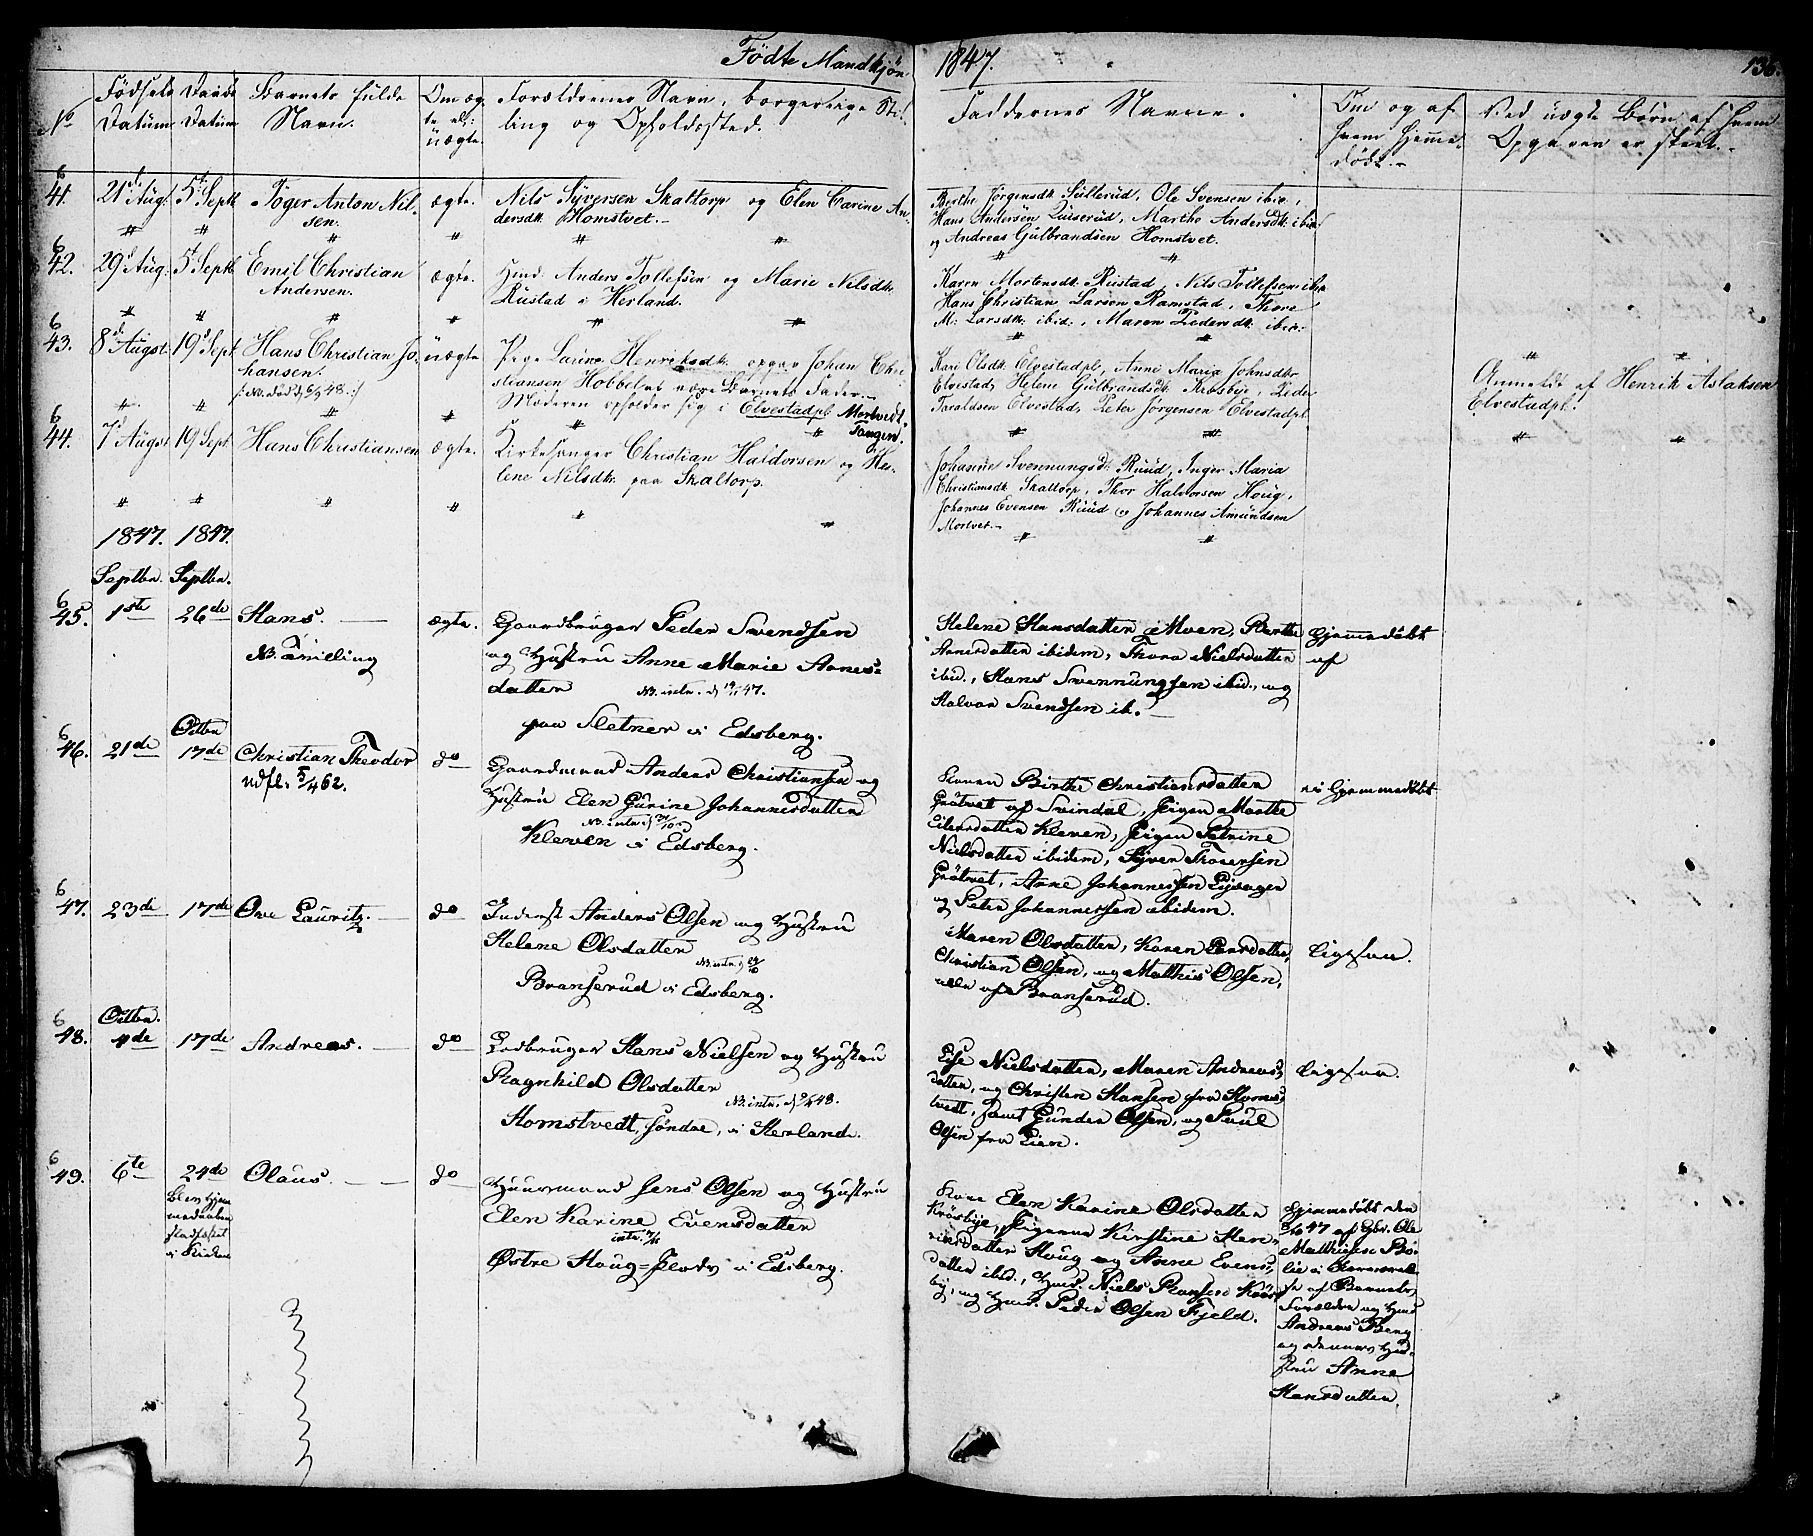 Födte Mandkjön 1847.
135.
No
Födsels Datum
Daabs Datum
Barnets fulde Navn.
Om ægte el: uægte.
Forældrenes Navn, borgerlige Stilling og Opholdssted.
Faddernes Navne.
Om og af hvem hjemmedöbt.
Ved uægte Börn, af hvem Opgaven er skeet.
6
41. 21d Aug. 5t Septb Töger Anton Nil- ægte. Nils Syversen Skaltorp og Elen Carine An-
sen. dersdtr. Homstvet.
Berthe Jörgensdtr Sullerud, Ole Svensen ibid.,
Hans Andersen Luiserud, Marthe Andersdtr: ibid:
og Andreas Gulbrandsen Homstvet.
6
42. 29d Aug. 5t Septb. Emil Christian ægte. Hmd. Anders Tollefsen og Marie Nilsdtr.
Andersen. Rustad i Herland.
Karen Mortensdtr. Rustad, Nils Tollefsen ibid.
Hans Christian Larsen Ramstad, Thore
M: Larsdtr: ibid:, Maren Pedersdtr. ibid.
6
43. 8d Augst. 19d Sept. Hans Christian Jo- uægte Pige Larine Henriksdtr. opgav Johan Chri-
hansen. stiansen Hobbel at være Barnets Fader.
Moderen opholder sig i Elvestadpl Mortvedt.
Tangen.
Kari Olsdtr. Elvestadpl, Anne Maria Johnsdtr
Elvestad, Helene Gulbrandsdtr. Krosbye, Peder
Taraldsen Elvestad, Peter Jörgensen Elvestadpl.
Anmeldt af Henrik Aslaksen
Elvestadpl.
6
44. 7d Augst 19 Sept. Hans Christiansen ægte. Kirkesanger Christian Haldorsen og He-
lene Nilsdtr. paa Skaltorp.
Johanne Svennungsd: Ruud, Inger Maria
Christiansdtr Skaltorp, Thor Halvorsen Houg,
Johannes Evensen Ruud og Johannes Amundsen
Mortvet.
1847. 1847.
Septbr. Septbr.
6
45. 1ste 26de Hans. ægte. Gaardbruger Peder Svendsen
NB. Tvilling og Hustru Anne Marie Arnes-
datter NB. intr.
paa Sletner i Edsberg.
Helene Hansdatter Moen, Berthe
Arnesdatter ibidem, Thora Nielsdatter
ibid., Hans Svennungsen ibid., og
Halvor Svendsen ib.
Hjemmedöbt
af
6
Octbr
46. 21de 17de Christian Theodor do Gaardmand Anders Christiansen og
Hustru Elen Gurine Johannesdatter
Kleven i Edsberg.
Konen Birthe Christiansdatter
Grötvet af Svindal, Pigen Marthe
Eilersdatter Kleven, Pigen Petrine
Nielsdatter ibidem, Syver Thoresen
Grötvet, Arne Johannessen
og Peter Johannessen ibidem.
ei Hjemmedöbt
6
47. 23de 17de Ove Lauritz. do Inderst Anders Olsen og Hustru
Helene Olsdatter
Branserud i Edsberg.
Maren Olsdatter, Karen Larsdatter,
Christian Olsen, og Matthis Olsen,
alle af Branserud.
ligesaa.
6
Octbr.
48. 4de 17de Andreas. do Jordbruger Hans Nielsen og Hustru
Ragnhild Olsdatter
Homstvedt, söndre, i Herland.
Lise Nielsdatter, Maren Andreas-
datter, og Christen Hansen fra Homst-
vedt, samt Gunder Olsen, og Paul
Olsen fra Lien.
ligesaa.
6
49. 6te 24de Olaus. do Huusmand Jens Olsen og Hustru
Elen Karine Evensdatter
Östre Houg- i Edsberg.
Kone Elen Karine Olsdatter
Krosbye, Pigerne Kirstine Hen-
riksdatter Houg og Anne Evens-
datter ibid., Hmd. Niels Hansen Kros-
by, og Hmd. Peder Olsen Fjeld.
Hjemmedöbt den
af Gbr. Ole
Mathisen Bö-
lie i
af Barnets
Forældre og Hmd
Andreas Berg
og dennes Hu-
stru Anne
Hansdatter.